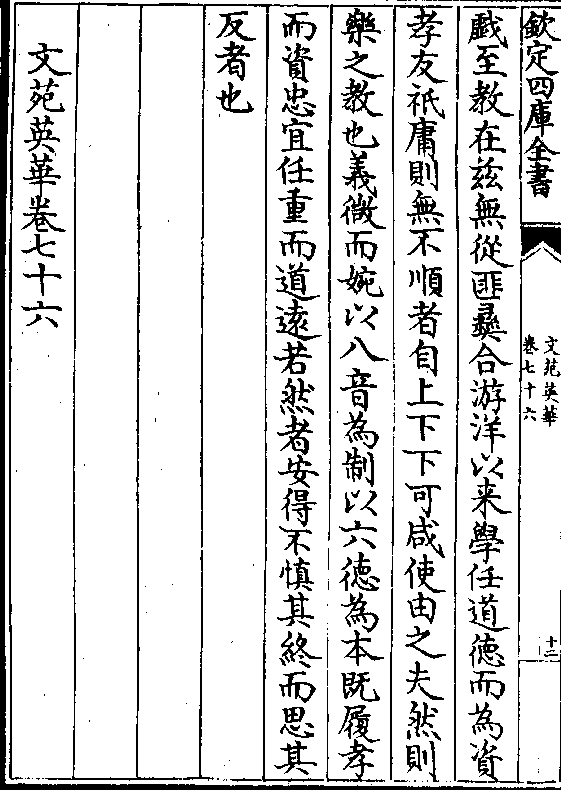 欽定四庫全書
文苑英華
卷七十六
十二
戲至教在兹無從匪彞合游洋以来學任道徳而為資
孝友祇庸則無不順者自上下下可咸使由之夫然則
樂之教也義微而婉以八音為制以六徳為本既履孝
而資忠宜任重而道逺若然者安得不慎其終而思其
反者也
文苑英華卷七十六